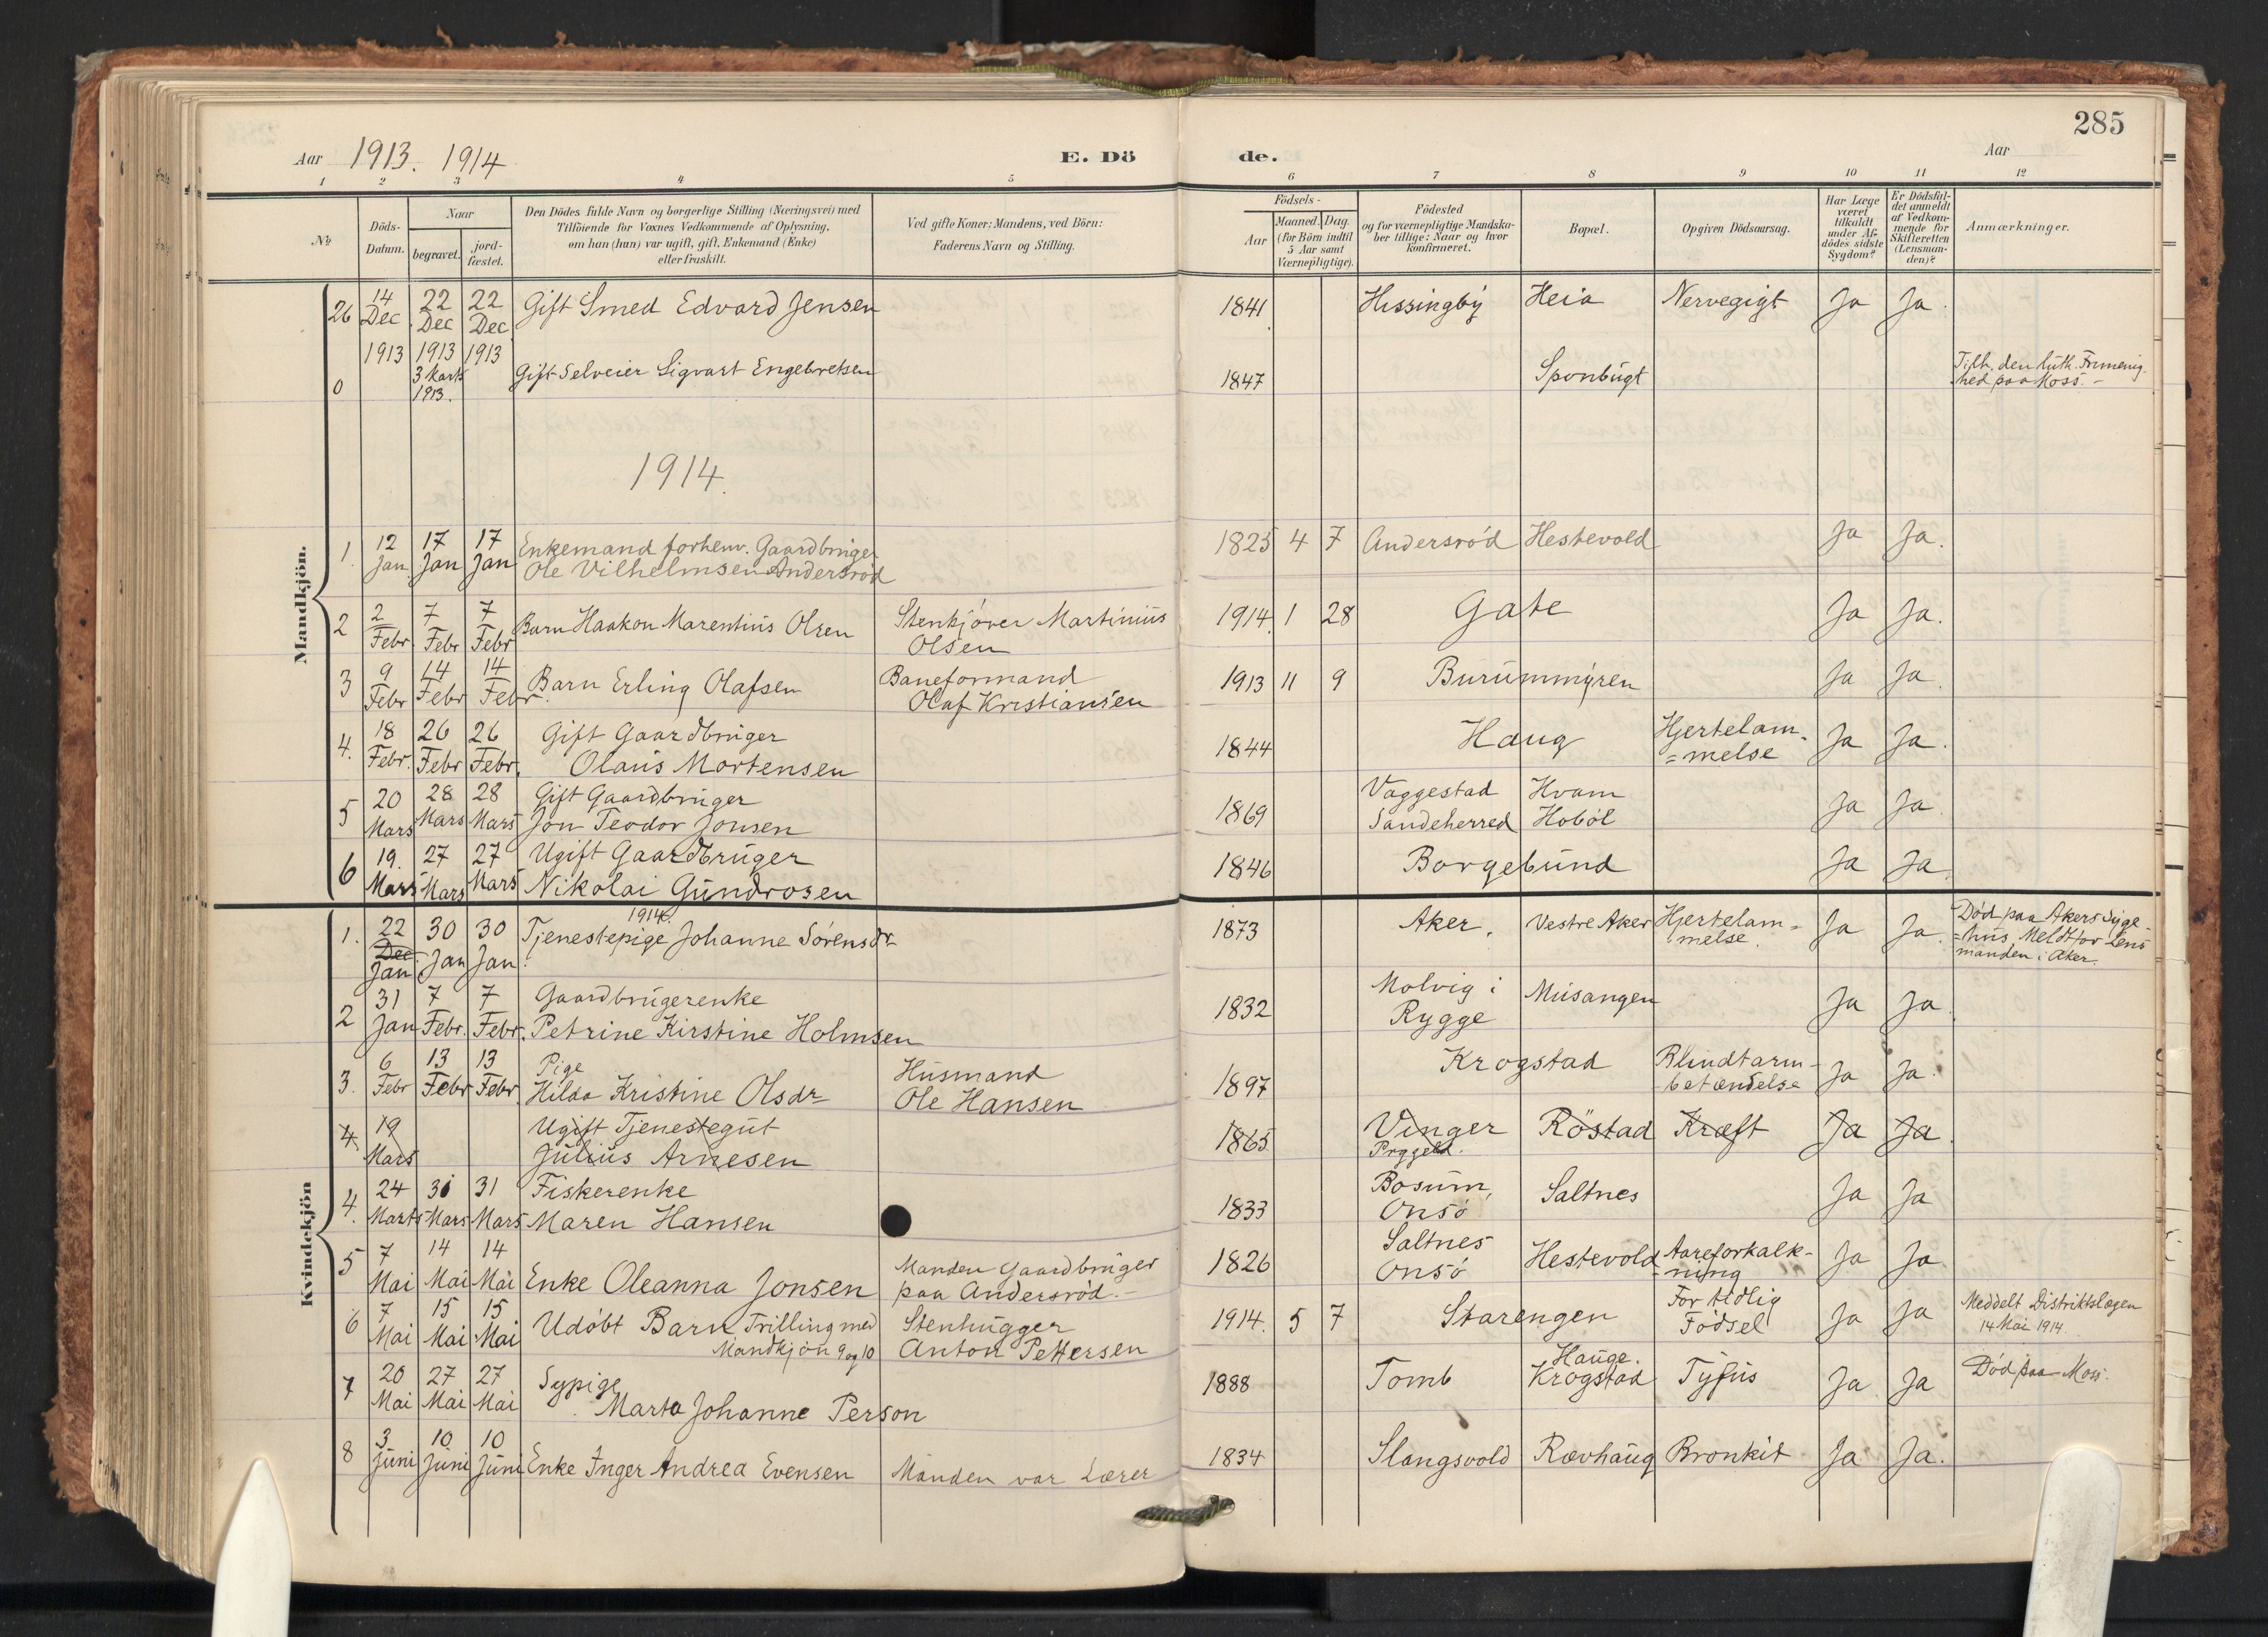 285
Aar 1913. 1914
E. Döde.
Aar
1 2 3 4 5 6 7 8 9 10 11 12
No
Döds-Datum.
Naar
begravet.
jord-fæstet.
Den Dödes fulde Navn og borgerlige Stilling (Næringsvei) med
Tilföiende for Voxnes Vedkommende af Oplysning,
om han (hun) var ugift, gift, Enkemand (Enke)
eller fraskilt.
Ved gifte Koner: Mandens, ved Börn:
Faderens Navn og Stilling.
Födsels-
Aar
Maaned. Dag.
(for Börn indtil
5 Aar samt
Værnepligtige).
Födested
og for værnepligtige Mandska-
ber tillige: Naar og hvor
konfirmeret.
Bopæl.
Opgiven Dödsaarsag.
Har Læge
været
tilkaldt
under Af-
dödes sidste
Sygdom?
Er Dödsfal-
det anmeldt
af Vedkom-
mende for
Skifteretten
(Lensman-
den)?
Anmærkninger.
Mandkjön.
26 14 Dec 1913 22 Dec 1913 22 Dec 1913 Gift Smed Edvard Jensen 1841 Hissingby Heia Nervegigt Ja Ja.
0 3 Marts 1913. Gift Selveier Sigvart Engebretsen 1847 Sponbugt Tilh. den luth. Frimenig-
hed paa Moss. -
1914.
1. 12 Jan 17 Jan 17 Jan Enkemand forhenv. Gaardbruger
Ole Vilhelmsen Andersröd 1825 4 7 Andersröd Hestevold Ja Ja.
2 2 Febr 7 Febr 7 Febr Barn Haakon Marentius Olsen Stenkjörer Martinius
Olsen 1914. 1 28 Gate Ja Ja.
3 9 Febr 14 Febr 14 Febr. Barn Erling Olafsen Baneformand
Olaf Kristiansen 1913 11 9 Burummyren Ja Ja.
4. 18 Febr. 26 Febr 26 Febr. Gift Gaardbruger
Olaus Mortensen 1844 Haug Hjertelam-
=melse Ja Ja.
5 20 Mars 28 Mars 28 Mars Gift Gaardbruger
Jon Teodor Jonsen 1869 Vaggestad
Sandeherred Hvam
Hoböl Ja Ja.
6 19. Mars 27 Mars 27 Mars Ugift Gaardbruger
Nikolai Gundrosen 1846 Borgebund Ja Ja.
Kvindekjön
1. 22 Dec. Jan 30 Jan 30 Jan 1914.
Tjenestepige Johanne Sörensdr 1873 Aker. Vestre Aker Hjertelam-
melse. Ja Ja. Död paa Akers Syge-
=hus. Meldt for Lens
manden i Aker.
2 31 Jan 7 Febr. 7 Febr. Gaardbrugerenke
Petrine Kirstine Holmsen 1832 Molvig i
Rygge Musangen Ja Ja.
3. 6 Febr 13 Febr 13 Febr. Pige
Hilda Kristine Olsdr Husmand
Ole Hansen 1897 Krogstad Blindtarm-
betændelse Ja Ja.
4. 19 Mars Ugift Tjenestegut
Julius Arnesen 1865 Vinger
Prgjeld. Röstad Kræft Ja Ja.
4. 24 Marts 31 Mars 31 Mars Fiskerenke
Maren Hansen 1833 Bosum,
Onsö Saltnes Ja Ja
5 7 Mai 14 Mai 14 Mai Enke Oleanna Jonsen Manden Gaardbruger
paa Andersröd. - 1826 Saltnes
Onsö Hestevold Aareforkalk-
-ning Ja Ja
6 7 Mai 15 Mai 15 Mai Udöbt Barn Trilling med
Mandkjön 9 og 10 Stenhugger
Anton Pettersen 1914. 5 7 Starengen For tidlig
Födsel Ja Ja Meddelt Distriktslægen
14 Mai 1914.
7 20 Mai 27 Mai 27 Mai Sypige
Marta Johanne Person 1888 Tomb Hauge.
Krogstad Tyfus Ja Ja Död paa Moss.
8 3 Juni 10 Juni 10 Juni Enke Inger Andrea Evensen Manden var Lærer 1834 Slangsvold Rævhaug Bronkit Ja Ja.